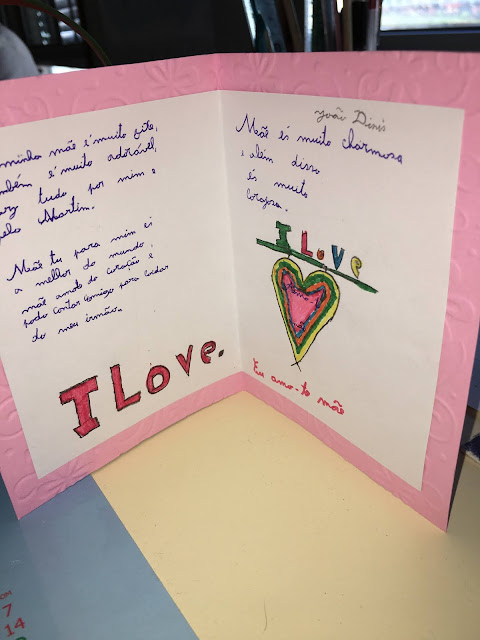 minha mãe é muito
mbém é muito adorável,
tudo por mim e
pelo Martim.
Mãe tu para mim és
a melhor do mundo
mãe amote do coração e
contar comigo para cuidar
do meu irmão.
I LOVE.
João Dinis
Mãe és muito charmosa
e além disso
és muito
corajosa.
I LOVE
Eu amo-te mãe
7
14